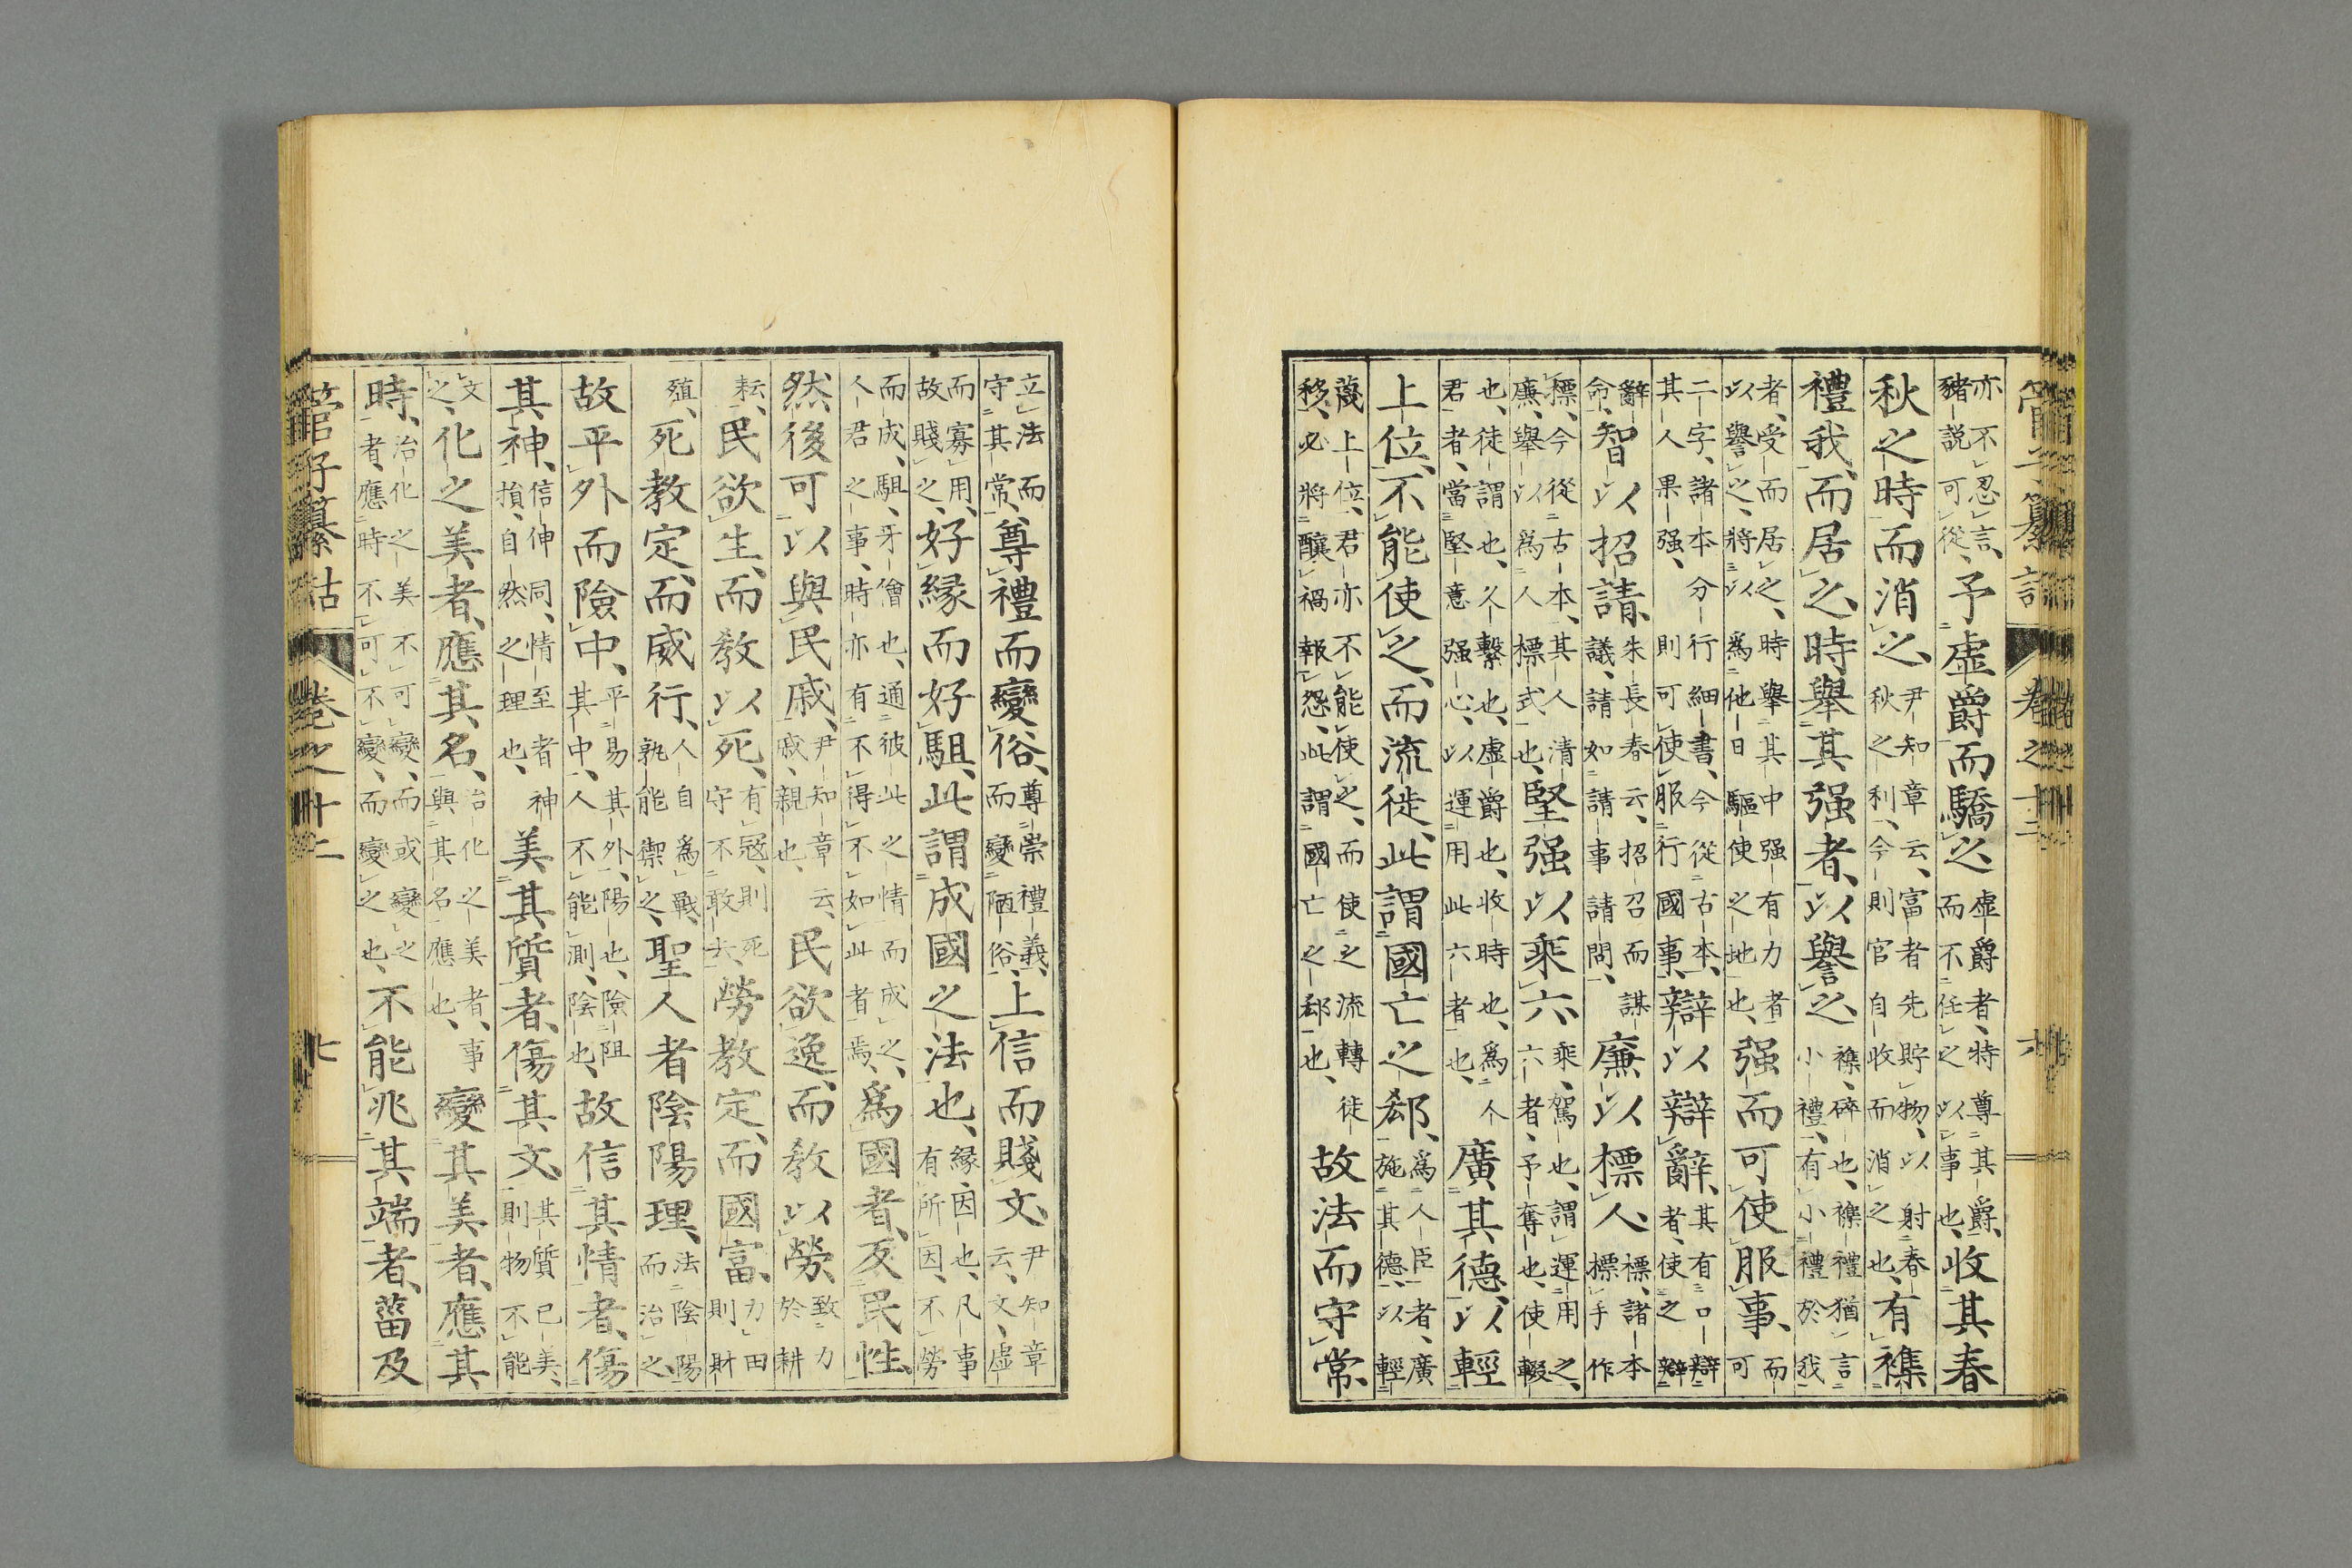 亦不忍言、豬説可從、予虛爵而驕之虛爵者、特尊其爵、而不任之以事也、收其春
秋之時而消之、尹知章云、富者先貯物、以射春秋之利、今則官自收而消之也、有襍
禮我而居之、襍、碎也、襍禮猶言小禮、有小禮於我者、受而居之、時舉其强者、以譽之、時舉其中强有力者以譽之、將以爲他日驅使之地也、强而可使服事、而可
二字、諸本分行細書、今從古本、其人果强、則可使服行國事、辯以辯辭、其有口辯者、使之辯
辭命、智以招請、朱長春云、招召而謀議、請如請事請問、廉以標人、標、諸本作摽手
標、今從古本、其人清廉、舉以爲人標式也、堅强以乘六、乘、駕也、謂運用之、六者、予奪也、使輟
也、徒謂也、久繫也、虛爵也、收時也、爲人君者、當堅意强心、以運用此六者也、廣其德、以輕
上位、不能使之、而流徙、此謂國亡之郄、爲人臣者、廣施其德、以輕
蔑上位、君亦不能使之、而使之流轉徙移、必將釀禍報怨、此謂國亡之郄也、故法而守常、
管子纂詁 卷之十二 六
立法而守其常、尊禮而變俗、尊崇禮義、而變陋俗、上信而賤文、尹知章云、文、虛
而寡用、故賤之、好緣而好駔、此謂成國之法也、緣、因也、凡事有所因、不勞
而成、駔、牙儈也、通彼此之情而成之、人君之事、時亦有不得不如此者焉、爲國者、反民性、
然後可以與民戚、尹知章云、戚、親也、民欲逸、而教以勞、致力於耕
耘、民欲生、而教以死、有冦、則死守不敢去、勞教定、而國富、力田則財
殖、死教定、而威行、人自爲戰、孰能禦之、聖人者陰陽理、法陰陽而治之、
故平外而險中、平易其外、陽也、險阻其中、人不能測、陰也、故信其情者、傷
其神、信伸同、情至者神損、自然之理也、美其質者、傷其文、其質已美、則物不能
文之、化之美者、應其名、治化之美者、事與其名應也、變其美者、應其
時、治化之美不可變、而或變之者、應時不可不變、而變之也、不能兆其端者、菑及
管子纂詁 卷之十二 七